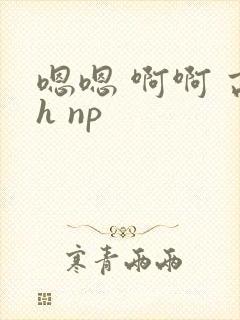 嗯嗯 啊啊
h np
寒青雨雨